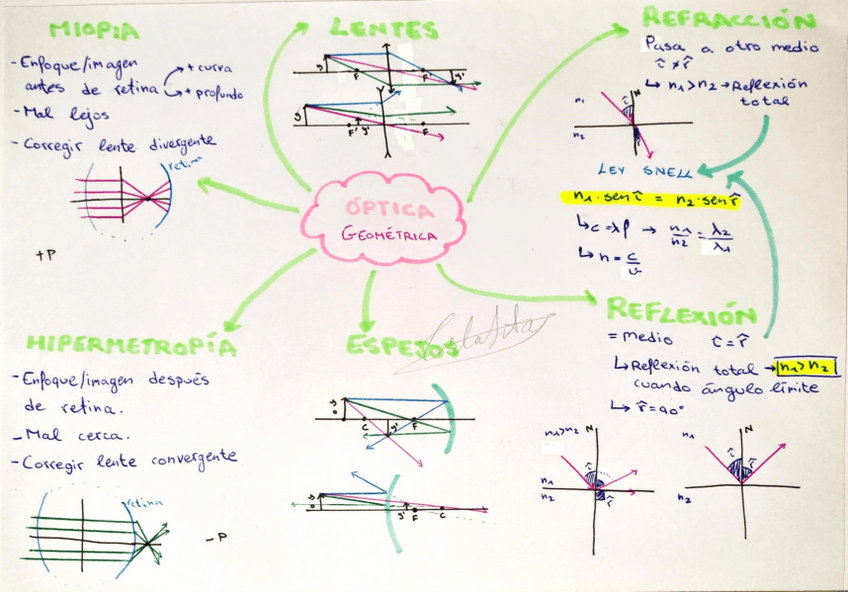 MIOPIA
- Enfoque/imagen
antes de retina
+ curva
+ profundo
- Mal lejos
- Corregir lente divergente
retina
+P
LENTES
y
F
F'
y'
y
F'
y'
F
REFRACCIÓN
Pasa a otro medio
î ≠ r̂
↳ n1 > n2 → Reflexión
total
N
n1
î
n2
r̂
LEY SNELL
n1 · sen î = n2 · sen r̂
↳ c = λf → n1/n2 = λ2/λ1
↳ n = c/v
ÓPTICA
GEOMÉTRICA
HIPERMETROPÍA
- Enfoque/imagen después
de retina.
- Mal cerca.
- Corregir lente convergente
retina
-P
ESPEJOS
y
o
C
y'
F
y
o
y'
F
C
REFLEXIÓN
= medio î = r̂
↳ Reflexión total → n1 > n2
cuando ángulo límite
↳ r̂ = 90°
n1>n2
N
î
n1
n2
r̂
n1
N
î
r̂
n2